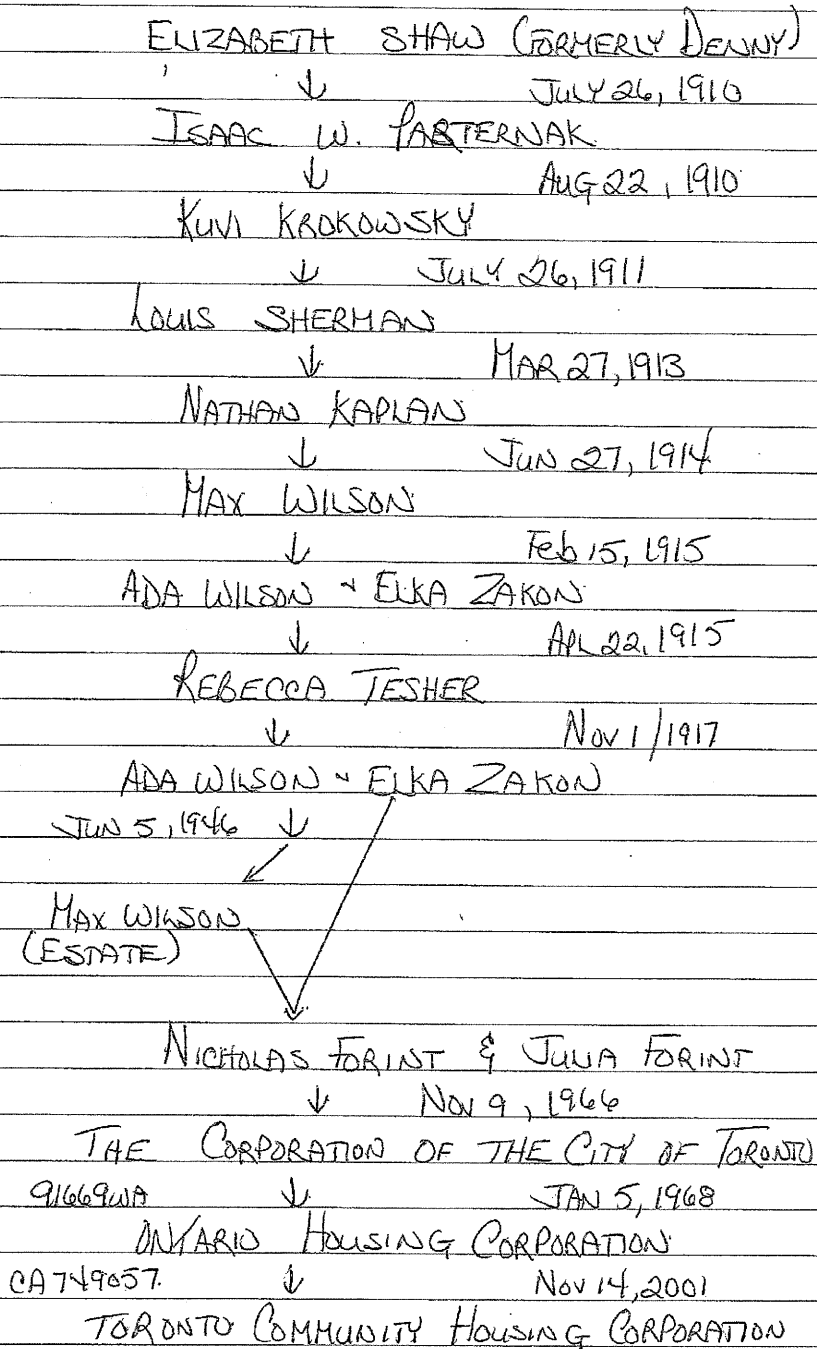 ELIZABETH SHAW (FORMERLY DENNY)
↓ JULY 26, 1910
ISAAC W. PASTERNAK
↓ AUG 22, 1910
KUVI KROKOWSKY
↓ JULY 26, 1911
LOUIS SHERMAN
↓ MAR 27, 1913
NATHAN KAPLAN
↓ JUN 27, 1914
MAX WILSON
↓ Feb 15, 1915
ADA WILSON & ELKA ZAKON
↓ APL 22, 1915
REBECCA TESHER
↓ NOV 1/1917
ADA WILSON & ELKA ZAKON
JUN 5, 1946 ↓
MAX WILSON
(ESTATE)
NICHOLAS FORINT & JULIA FORINT
↓ NOV 9, 1966
THE CORPORATION OF THE CITY OF TORONTO
91669WA ↓ JAN 5, 1968
ONTARIO HOUSING CORPORATION
CA749057. ↓ NOV 14, 2001
TORONTO COMMUNITY HOUSING CORPORATION